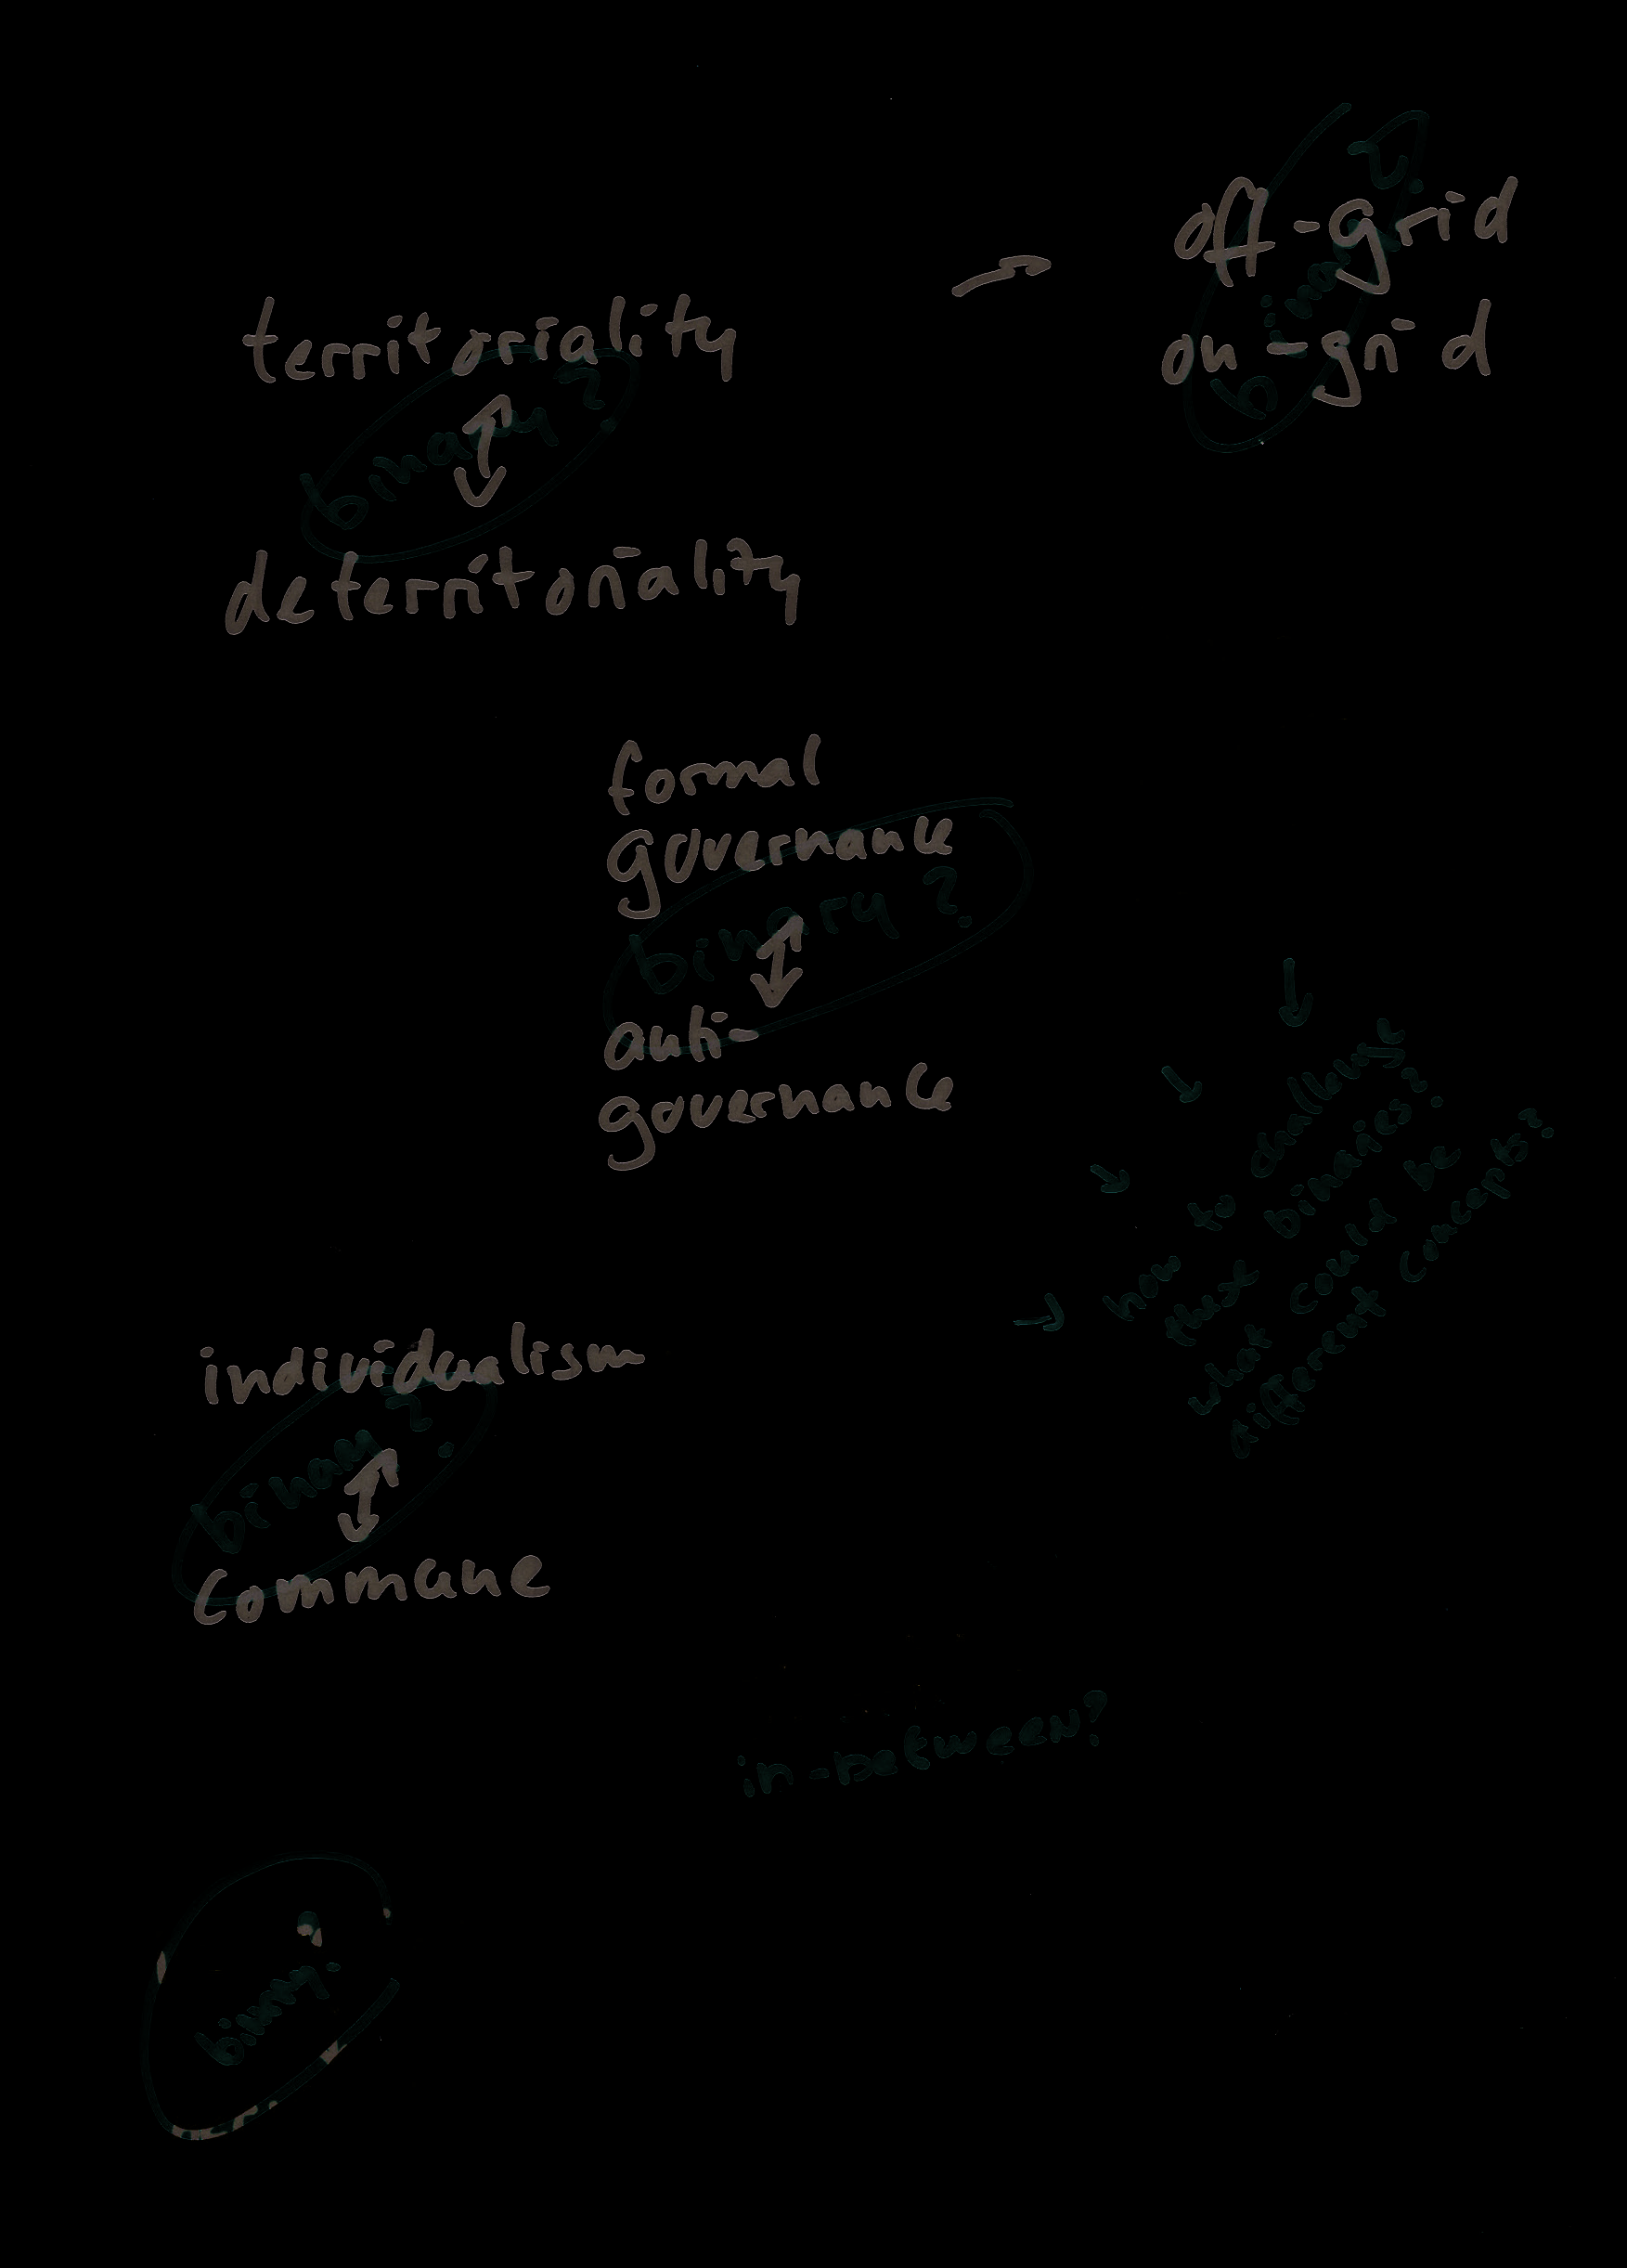 off-grid
binary?
on-grid
territoriality
binary?
deterritoriality
formal
governance
binary?
anti-
governance
how to challenge
that binaries?
what could be
different concepts?
individualism
binary?
commune
in-between?
binary?